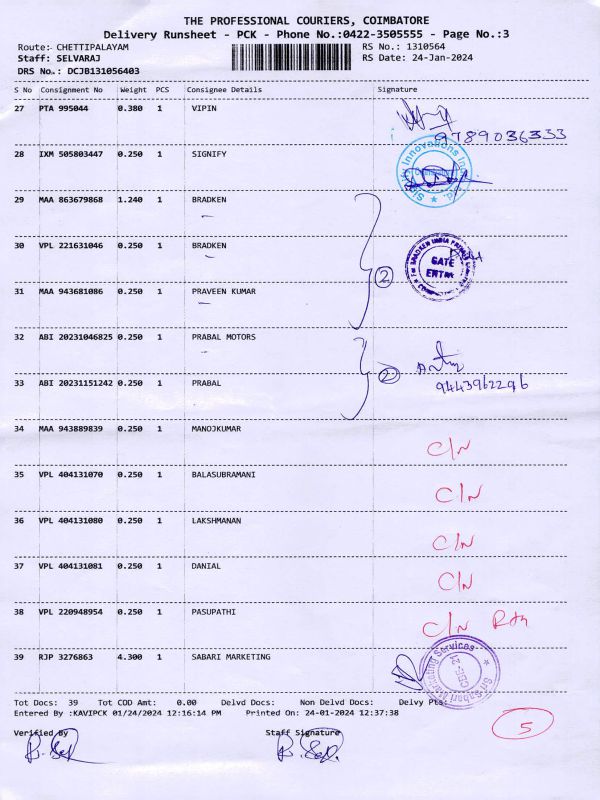 THE PROFESSIONAL COURIERS, COIMBATORE
Delivery Runsheet - PCK - Phone No.:0422-3505555 - Page No.:3
Route: CHETTIPALAYAM RS No.: 1310564
Staff: SELVARAJ RS Date: 24-Jan-2024
DRS No.: DCJB131056403
S No Consignment No Weight PCS Consignee Details Signature
27 PTA 995044 0.380 1 VIPIN
9789036333
28 IXM 505803447 0.250 1 SIGNIFY
29 MAA 863679868 1.240 1 BRADKEN
30 VPL 221631046 0.250 1 BRADKEN
GATE
ENTRY
2
31 MAA 943681086 0.250 1 PRAVEEN KUMAR
32 ABI 20231046825 0.250 1 PRABAL MOTORS
2
33 ABI 20231151242 0.250 1 PRABAL 9443962296
34 MAA 943889839 0.250 1 MANOJKUMAR
C/N
35 VPL 404131070 0.250 1 BALASUBRAMANI
C/N
36 VPL 404131080 0.250 1 LAKSHMANAN
C/N
37 VPL 404131081 0.250 1 DANIAL
C/N
38 VPL 220948954 0.250 1 PASUPATHI
C/N
39 RJP 3276863 4.300 1 SABARI MARKETING
Sri Sabari Marketing Services
Tot Docs: 39 Tot COD Amt: 0.00 Delvd Docs: Non Delvd Docs: Delvy Pts:
Entered By :KAVIPCK 01/24/2024 12:16:14 PM Printed On: 24-01-2024 12:37:38
5
Verified By Staff Signature